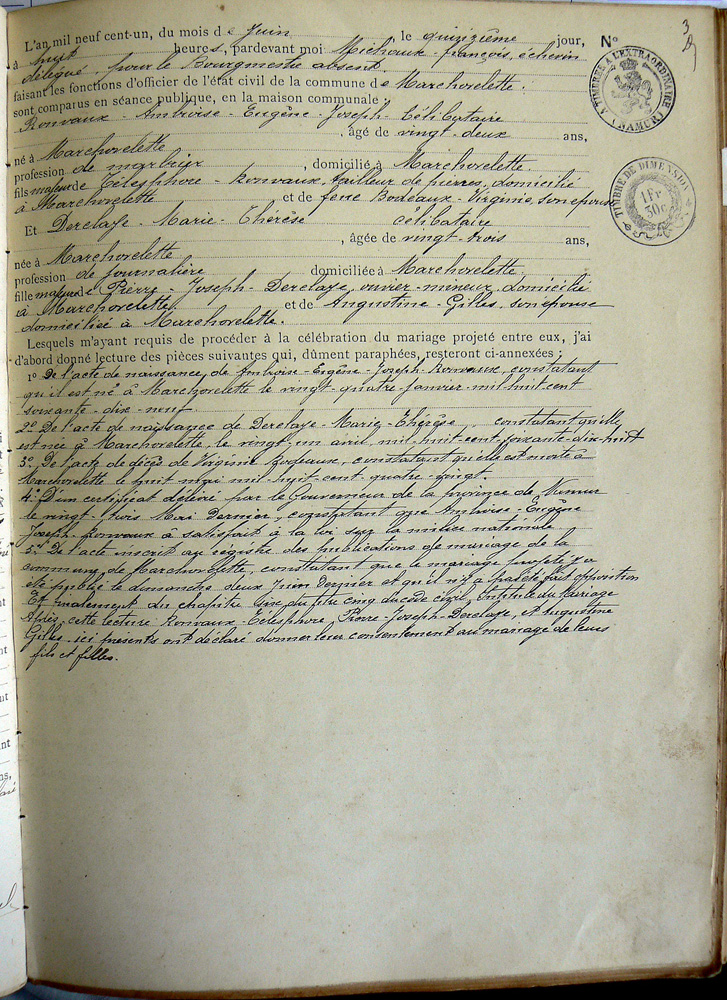 3
L'an mil neuf cent-un, du mois de Juin, le quinzième jour, N°
à huit heures, pardevant moi Michaux-françois, échevin
délégué, pour le Bourgmestre absent
faisant les fonctions d'officier de l'état civil de la commune de Marchovelette.
sont comparus en séance publique, en la maison communale:
Ronvaux-Ambroise-Eugène-Joseph-Célibataire
, âgé de vingt-deux ans,
né à Marchovelette
profession de marbrier, domicilié à Marchovelette
fils majeur de Télesphore-Ronvaux, tailleur de pierres, domicilié
à Marchovelette et de feue Bodeaux-Virginie, son épouse
Et Derclaye-Marie-Thérèse célibataire
, âgée de vingt-trois ans,
née à Marchovelette
profession de journalière domiciliée à Marchovelette
fille majeure de Pierre-Joseph-Derclaye, ouvrier-mineur, domicilié
à Marchovelette et de Augustine-Gilles, son épouse
domiciliée à Marchovelette.
Lesquels m'ayant requis de procéder à la célébration du mariage projeté entre eux, j'ai
d'abord donné lecture des pièces suivantes qui, dûment paraphées, resteront ci-annexées:
1° De l'acte de naissance, de Ambroise-Eugène-Joseph-Ronvaux, constatant
qu'il est né à Marchovelette le vingt-quatre-janvier-mil-huit-cent
soixante-dix-neuf
2° De l'acte de naissance de Derclaye-Marie-Thérèse, constatant qu'elle
est née à Marchovelette, le vingt-un avril, mil-huit-cent-soixante-dix-huit
3° De l'acte de décès de Virginie Bodeaux, constatant qu'elle est morte à
Marchovelette le huit mai mil-huit-cent-quatre-vingt.
4° D'un certificat délivré par le Gouverneur de la province de Namur
le vingt-trois Mai dernier, constatant que Ambroise-Eugène
Joseph-Ronvaux à satisfait à la loi sur la milice nationale
5° De l'acte inscrit au registre des publications de mariage de la
commune de Marchovelette, constatant que le mariage projeté a
été publié le dimanche deux Juin dernier et qu'il n'y a pas été fait opposition
Et finalement du chapitre six, du titre cinq du code civil, Intitulé du Mariage
Après cette lecture Ronvaux-Télesphore, Pierre-Joseph-Derclaye, et Augustine
Gilles-ici présents ont déclaré donner leur consentement au mariage de leurs
fils et filles.
TIMBRE A L'EXTRAORDINAIRE
(NAMUR)
TIMBRE DE DIMENSION
1 Fr
30c